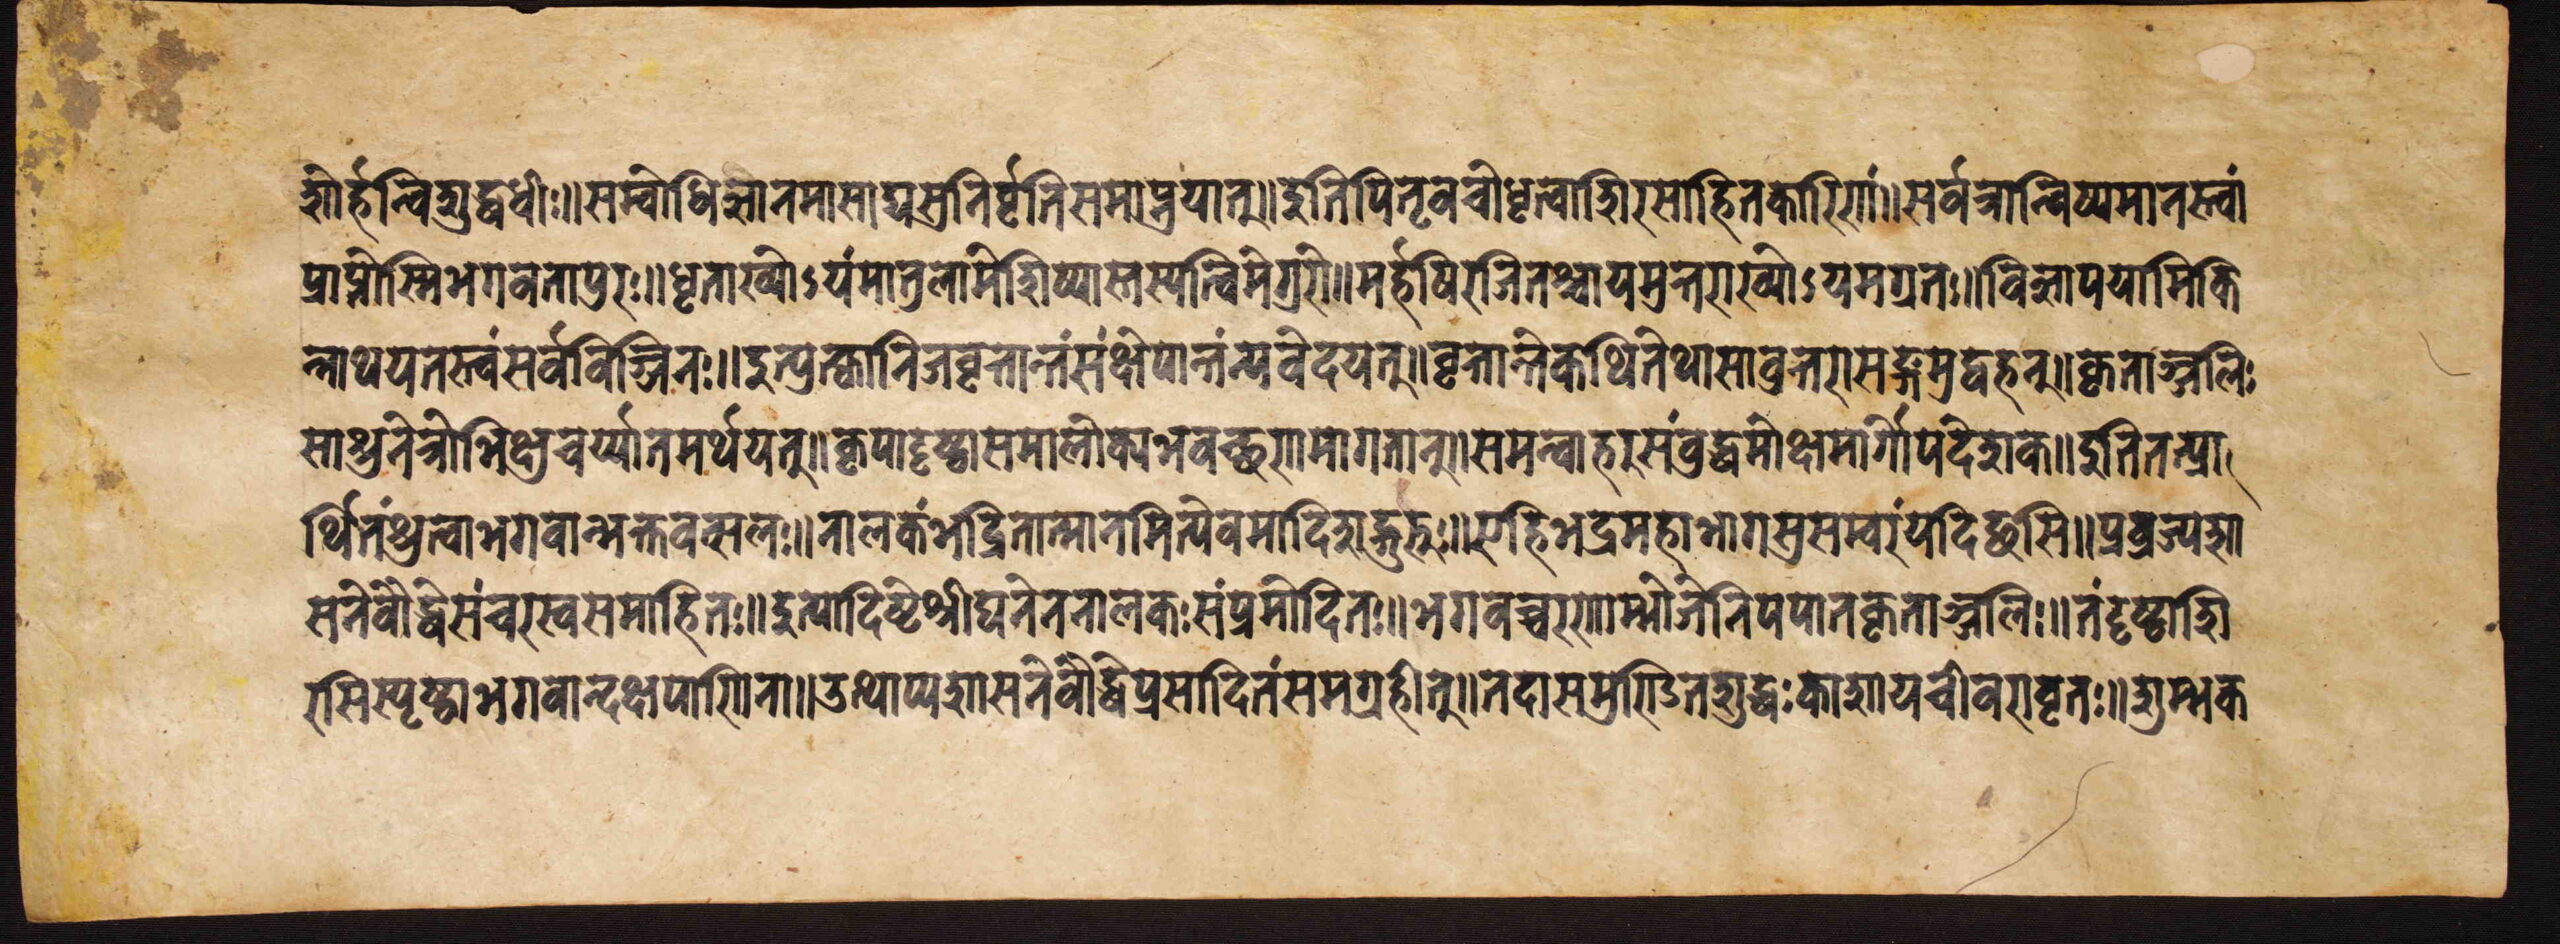 शोर्हन्विशुद्धधीः॥सम्बोधिज्ञानमासाद्यसुनिर्वृतिसमाप्नुयात्॥इतिपितृवचोधृत्वाशिरसाहितकारिणां॥सर्वत्रान्विष्यमानस्त्वां
प्राप्तोस्मिभगवतापुरः॥धृताख्योऽयंमातुलामेशिष्यास्तस्यत्विमेगुरो॥महर्षिरजितश्चायमुत्तराख्योऽयमग्रतः॥विज्ञापयामिकि
न्नाथयतस्त्वंसर्वविज्जिनः॥इत्युत्क्वानिजवृत्तान्तंसंक्षेपान्तंन्यवेदयत्॥वृत्तान्तेकथितेथासावुत्तरासङ्गमुद्वहन्॥कृताञ्जलिः
साश्रुनेत्रोभिक्षुचर्य्यातमर्थयत्॥कृपादृष्ट्वासमालोक्यभवच्छरणमागतान्॥समन्वाहरसंबुद्धमोक्षमार्गोपदेशक॥इतितत्प्रा
र्थितंश्रुत्वाभगवान्भक्तवत्सलः॥नालकंभद्रितात्मानमित्येवमादिशद्गुरुः॥एहिभद्रमहाभागसुसम्वरंयदिच्छसि॥प्रव्रज्यशा
सनेबौद्धेसंचरस्वसमाहितः॥इत्यादिष्टेश्रीघनेननालकःसंप्रमोदितः॥भगवच्चरणाम्भोजेनिपपातकृताञ्जलिः॥तंदृष्ट्वाशि
रसिस्पृष्ट्वाभगवान्दक्षपाणिना॥उत्थाप्यशासनेबौद्धेप्रसादितंसमग्रहीत्॥तदासमुण्डितशुद्धःकाशायचीवरावृतः॥शुम्भक